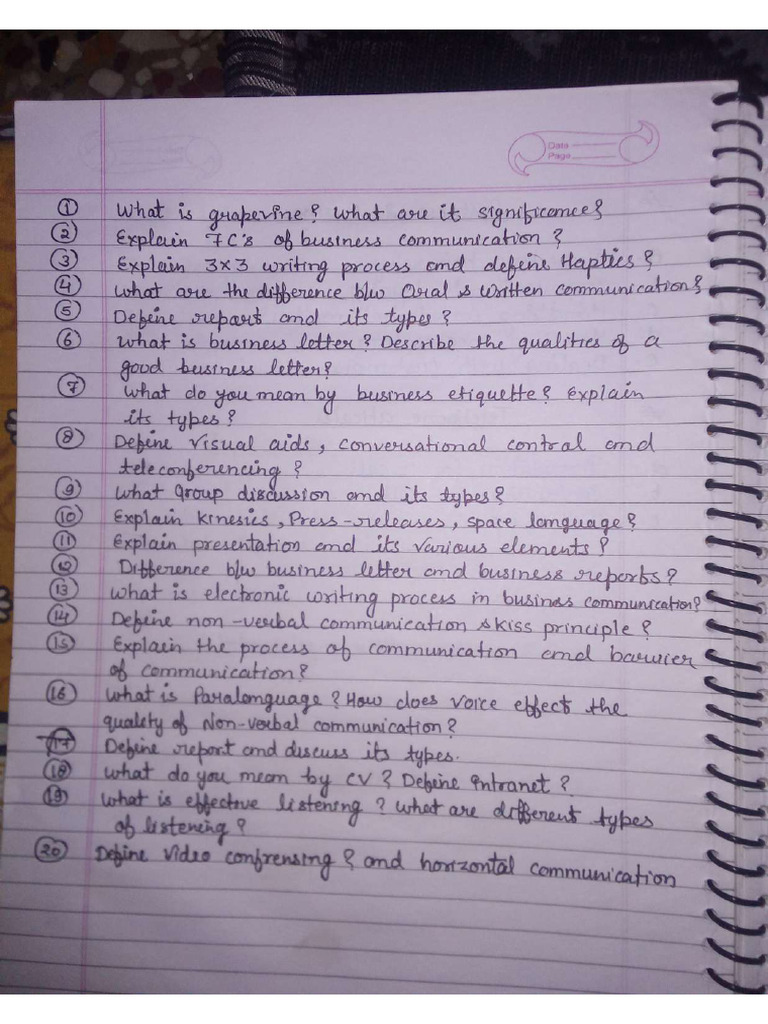 Date
Page
① What is grapevine? What are it significance?
② Explain 7C's of business communication?
③ Explain 3x3 writing process and define Haptics?
④ What are the difference b/w Oral & Written communication?
⑤ Define report and its types?
⑥ What is business letter? Describe the qualities of a
good business letter?
⑦ What do you mean by business etiquette? Explain
its types?
⑧ Define visual aids, conversational control and
teleconferencing?
⑨ What Group discussion and its types?
⑩ Explain kinesics, Press-releases, space language?
⑪ Explain presentation and its various elements?
⑫ Difference b/w business letter and business reports?
⑬ What is electronic writing process in business communication?
⑭ Define non-verbal communication & kiss principle?
⑮ Explain the process of communication and barrier
of communication?
⑯ What is Paralanguage? How does voice effect the
quality of Non-verbal communication?
⑰ Define report and discuss its types.
⑱ What do you mean by CV? Define Intranet?
⑲ What is effective listening? What are different types
of listening?
⑳ Define video confrensing? and horizontal communication